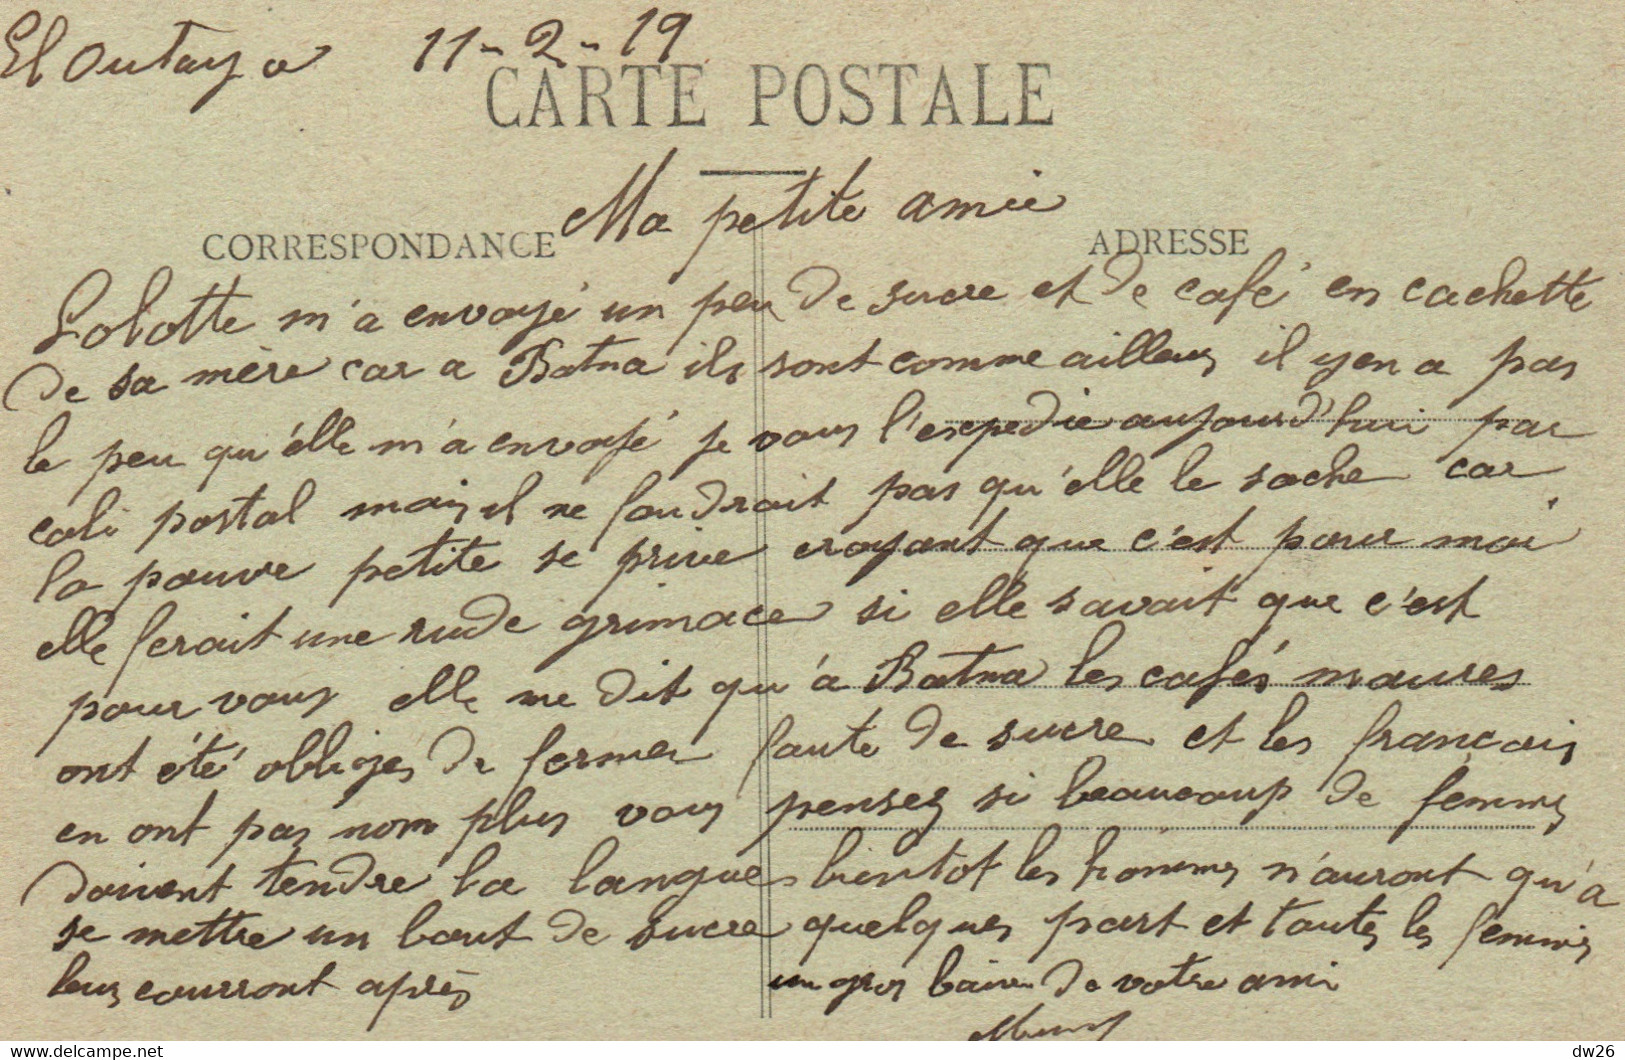 El Outaya 11-2-19
CARTE POSTALE
Ma petite amie
CORRESPONDANCE
ADRESSE
Lolotte m'a envoyé un peu de sucre et de café en cachette
de sa mère car a Batna ils sont comme ailleurs il y en a pas
le peu qu'elle m'a envoyé je vous l'expedie aujourd'hui par
coli postal mais il ne faudrait pas qu'elle le sache car
la pauvre petite se prive croyant que c'est pour moi
elle ferait une rude grimace si elle savait que c'est
pour vous elle me dit qu'à Batna les cafés maures
ont été obligés de fermer faute de sucre et les français
en ont pas nom plus vous pensez si beaucoup de femmes
doivent tendre la langue bientot les hommes n'auront qu'a
se mettre un bout de sucre quelques part et toutes les femmes
leurs courront après
un gros baiser de votre ami
dw26